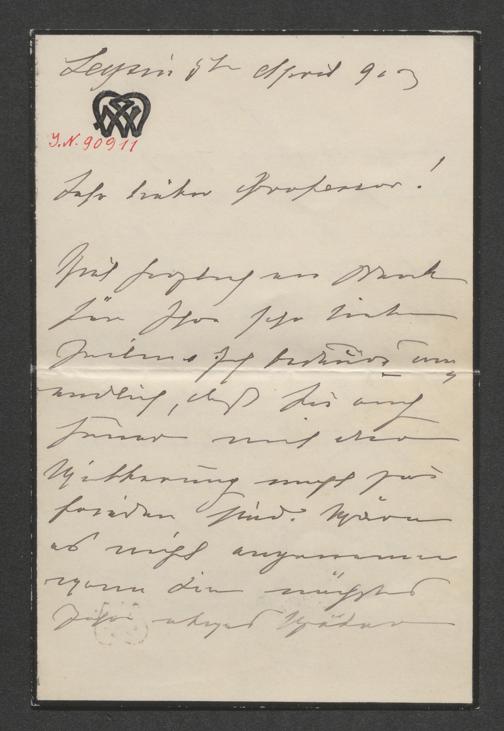 Leysin 5te April 903
J.N. 90911
Sehr lieber Professor!
Viel herzlichen Dank
für Ihre sehr lieben
Zeilen. Ich bedaure un
endlich, daß Sie auch
heuer mit der
Witterung nicht zu
frieden sind. Wäre
es nicht angenehmer
wenn Sie nächstes
Jahr Wäder